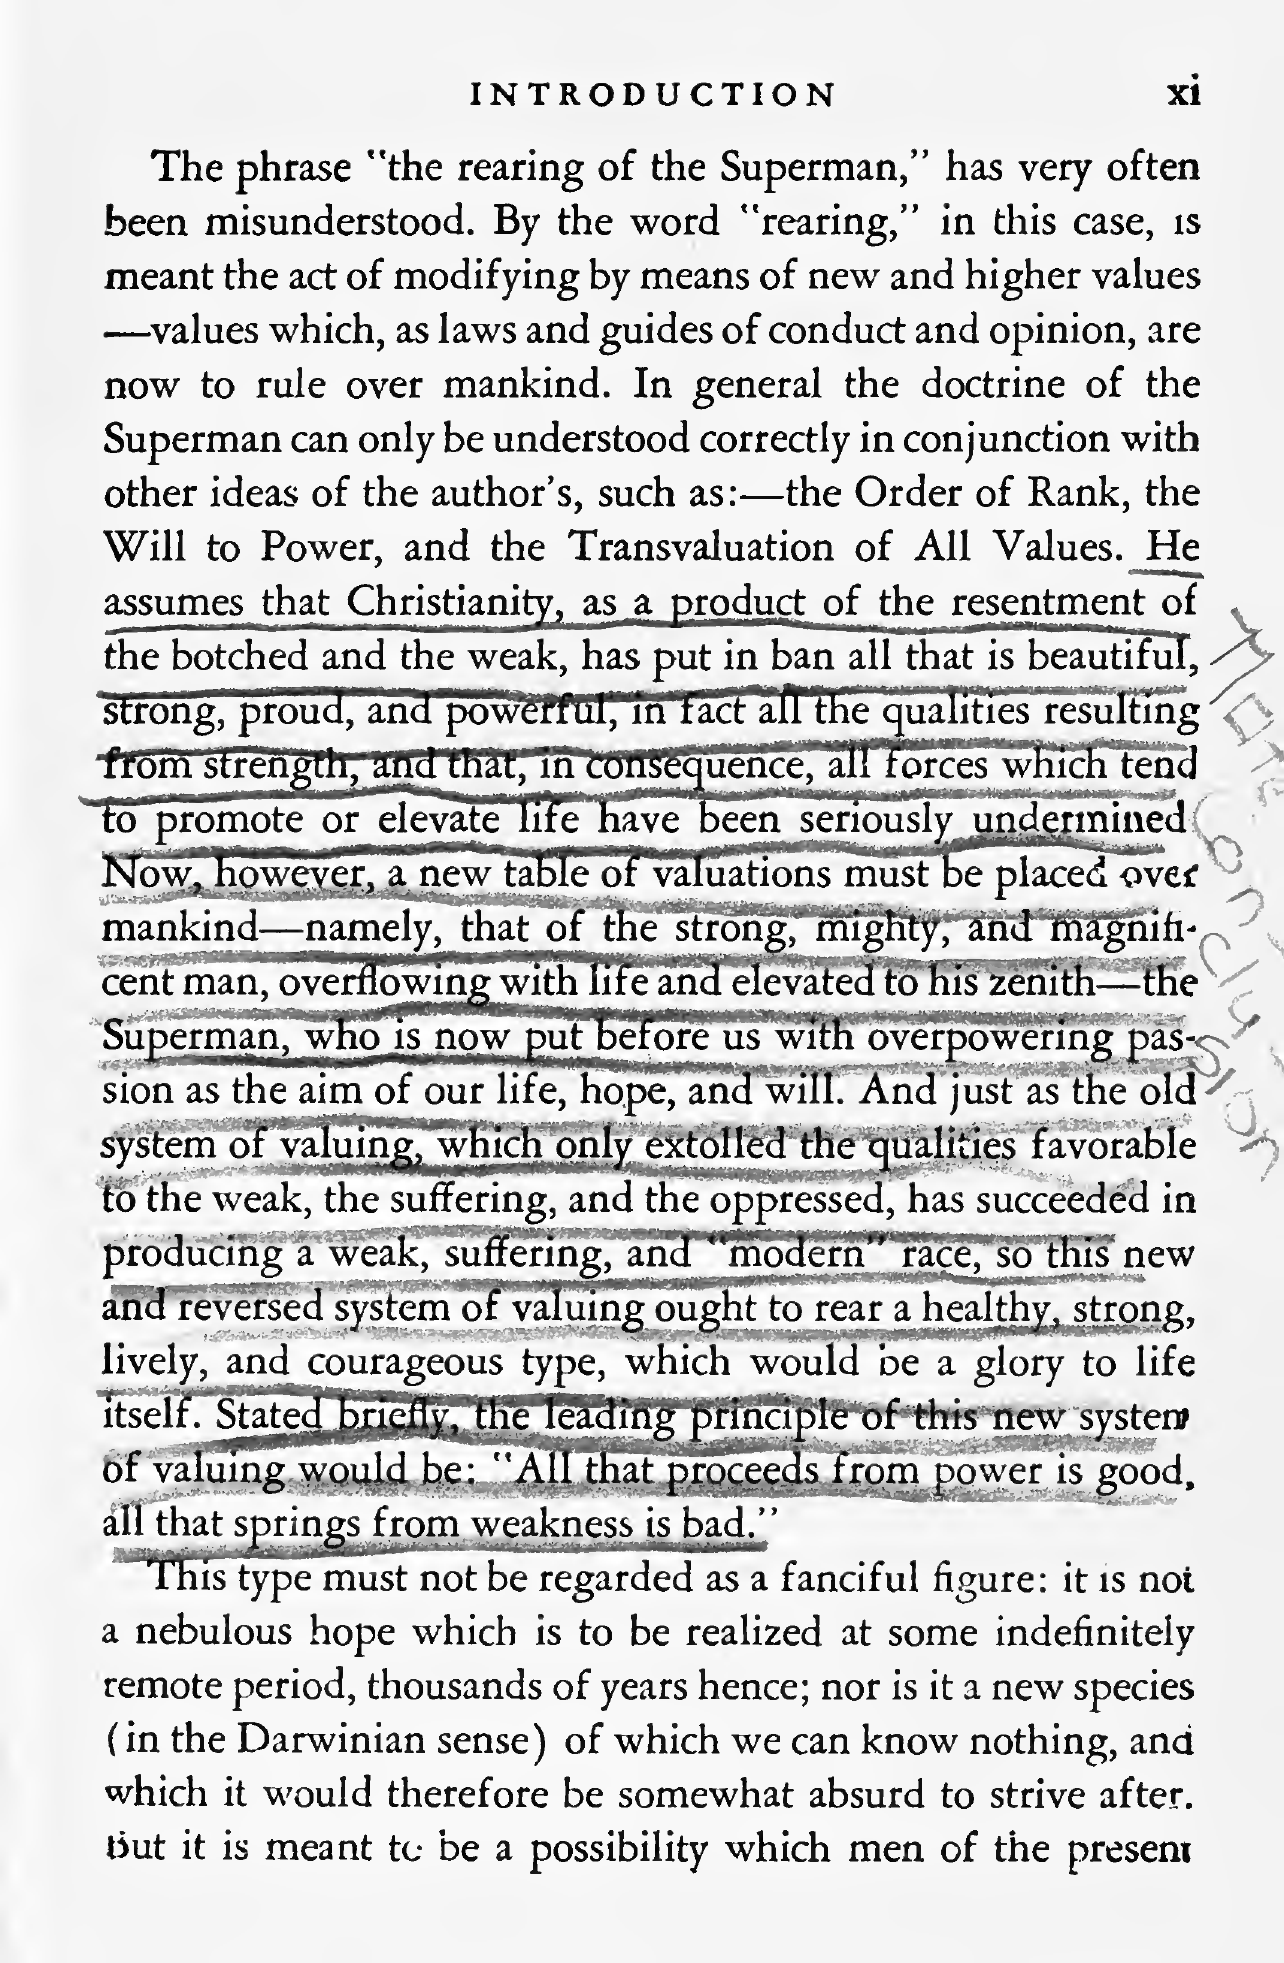 INTRODUCTION xi
The phrase "the rearing of the Superman," has very often
been misunderstood. By the word "rearing," in this case, is
meant the act of modifying by means of new and higher values
—values which, as laws and guides of conduct and opinion, are
now to rule over mankind. In general the doctrine of the
Superman can only be understood correctly in conjunction with
other ideas of the author's, such as:—the Order of Rank, the
Will to Power, and the Transvaluation of All Values. He
assumes that Christianity, as a product of the resentment of
the botched and the weak, has put in ban all that is beautiful,
strong, proud, and powerful, in fact all the qualities resulting
from strength, and that, in consequence, all forces which tend
to promote or elevate life have been seriously undermined
Now, however, a new table of valuations must be placed over
mankind—namely, that of the strong, mighty, and magnifi-
cent man, overflowing with life and elevated to his zenith—the
Superman, who is now put before us with overpowering pas-
sion as the aim of our life, hope, and will. And just as the old
system of valuing, which only extolled the qualities favorable
to the weak, the suffering, and the oppressed, has succeeded in
producing a weak, suffering, and "modern" race, so this new
and reversed system of valuing ought to rear a healthy, strong,
lively, and courageous type, which would be a glory to life
itself. Stated briefly, the leading principle of this new system
of valuing would be: "All that proceeds from power is good,
all that springs from weakness is bad."
This type must not be regarded as a fanciful figure: it is not
a nebulous hope which is to be realized at some indefinitely
remote period, thousands of years hence; nor is it a new species
(in the Darwinian sense) of which we can know nothing, and
which it would therefore be somewhat absurd to strive after.
But it is meant to be a possibility which men of the present
Conclusion